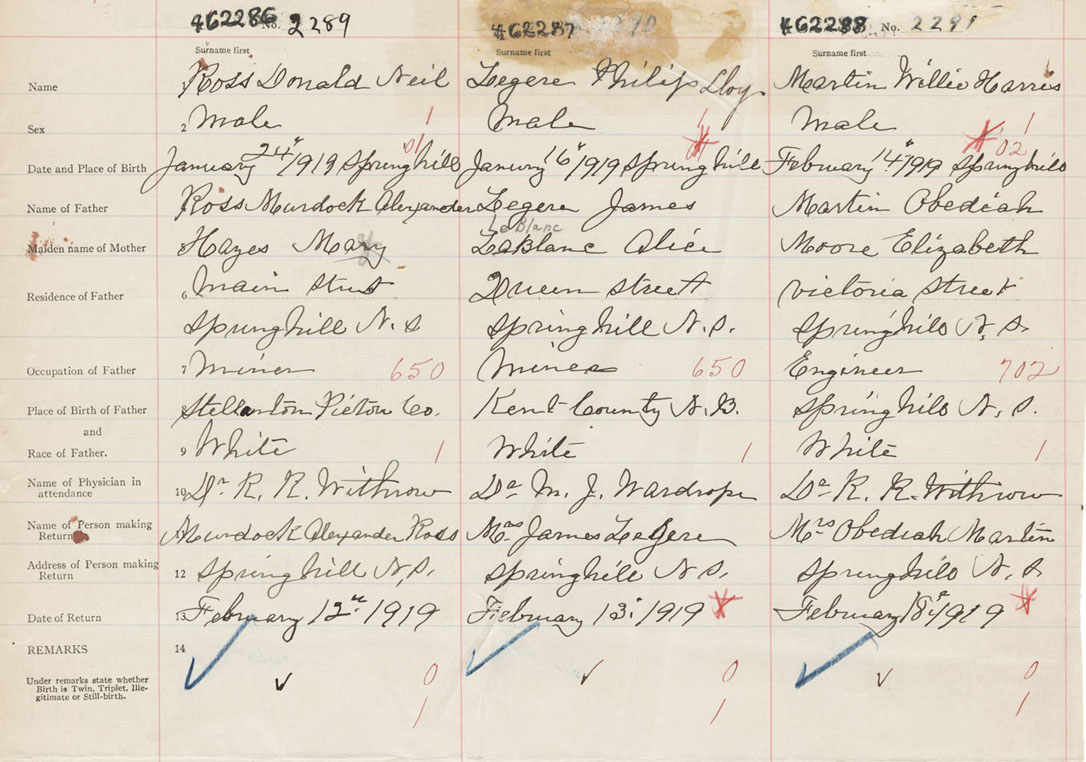 462286 No. 2289 462287 462288 No. 2291
Surname first Surname first Surname first
Name Ross Donald Neil Legere Philip Lloy Martin Willie Harris
Sex 2 Male 1 Male 1 Male 1
Date and Place of Birth January 24" 1919 Springhill 01 January 16" 1919 Springhill 01 February 14" 1919 Springhill 02
Name of Father Ross Murdock Alexander Legere James Martin Obediah
LeBlanc
Maiden name of Mother Hayes Mary LaBlanc Alice Moore Elizabeth
Residence of Father 6 Main Street Queen Street Victoria Street
Springhill N.S Springhill N.S. Springhill N.S.
Occupation of Father 7 Miner 650 Miner 650 Engineer 702
Place of Birth of Father Stellarton Pictou Co. Kent County N.B. Springhill N.S.
and
Race of Father. 9 White 1 White 1 White 1
Name of Physician in attendance 10 Dr R. R. Withrow Dr M. J. Wardrope Dr R. R. Withrow
Name of Person making Return Murdock Alexander Ross Mrs James LeGere Mrs Obediah Martin
Address of Person making Return 12 Springhill N.S. Springhill N.S. Springhill N.S.
Date of Return 13 February 12" 1919 February 13" 1919 February 18" 1919
REMARKS 14
Under remarks state whether 0 0 0
Birth is Twin, Triplet, Ille-
gitimate or Still-birth. 1 1 1